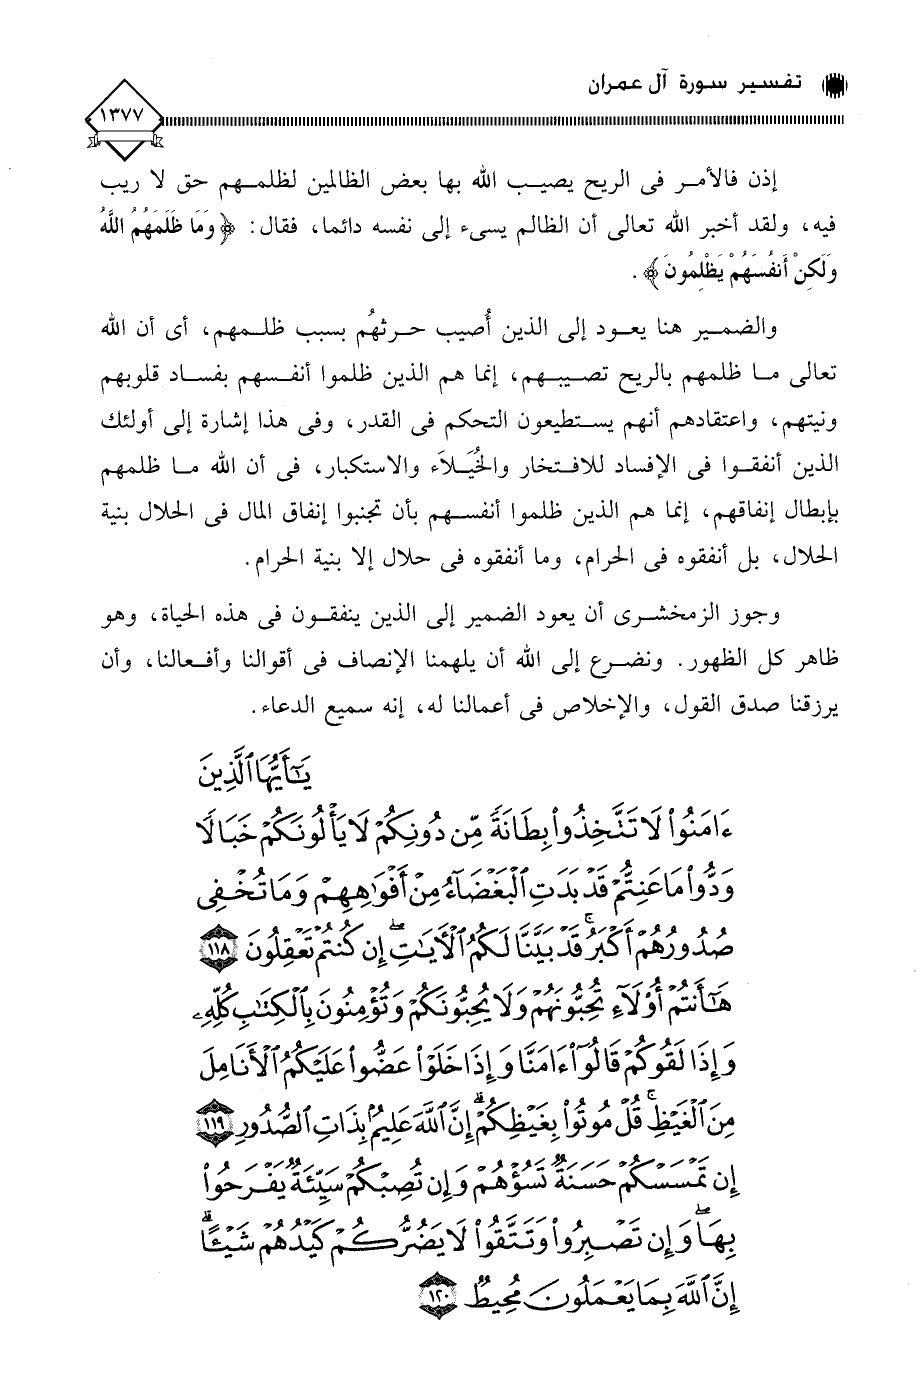 تفسير سورة آل عمران
١٣٧٧
إذن فالأمر فى الريح يصيب الله بها بعض الظالمين لظلمهم حق لا ريب
فيه، ولقد أخبر الله تعالى أن الظالم يسىء إلى نفسه دائما، فقال: ﴿وَمَا ظَلَمَهُمُ اللَّهُ
وَلَكِنْ أَنفُسَهُمْ يَظْلِمُونَ﴾.
والضمير هنا يعود إلى الذين أُصيب حرثهُم بسبب ظلمهم، أى أن الله
تعالى ما ظلمهم بالريح تصيبهم، إنما هم الذين ظلموا أنفسهم بفساد قلوبهم
ونيتهم، واعتقادهم أنهم يستطيعون التحكم فى القدر، وفى هذا إشارة إلى أولئك
الذين أنفقوا فى الإفساد للافتخار والخُيَلاَء والاستكبار، فى أن الله ما ظلمهم
بإبطال إنفاقهم، إنما هم الذين ظلموا أنفسهم بأن تجنبوا إنفاق المال فى الحلال بنية
الحلال، بل أنفقوه فى الحرام، وما أنفقوه فى حلال إلا بنية الحرام.
وجوز الزمخشرى أن يعود الضمير إلى الذين ينفقون فى هذه الحياة، وهو
ظاهر كل الظهور. ونضرع إلى الله أن يلهمنا الإنصاف فى أقوالنا وأفعالنا، وأن
يرزقنا صدق القول، والإخلاص فى أعمالنا له، إنه سميع الدعاء.
يَٰٓأَيُّهَا ٱلَّذِينَ
ءَامَنُوا۟ لَا تَتَّخِذُوا۟ بِطَانَةً مِّن دُونِكُمْ لَا يَأْلُونَكُمْ خَبَالًا
وَدُّوا۟ مَا عَنِتُّمْ قَدْ بَدَتِ ٱلْبَغْضَآءُ مِنْ أَفْوَٰهِهِمْ وَمَا تُخْفِى
صُدُورُهُمْ أَكْبَرُ ۚ قَدْ بَيَّنَّا لَكُمُ ٱلْءَايَٰتِ ۖ إِن كُنتُمْ تَعْقِلُونَ ١١٨
هَٰٓأَنتُمْ أُو۟لَآءِ تُحِبُّونَهُمْ وَلَا يُحِبُّونَكُمْ وَتُؤْمِنُونَ بِٱلْكِتَٰبِ كُلِّهِۦ
وَإِذَا لَقُوكُمْ قَالُوٓا۟ ءَامَنَّا وَإِذَا خَلَوْا۟ عَضُّوا۟ عَلَيْكُمُ ٱلْأَنَامِلَ
مِنَ ٱلْغَيْظِ ۚ قُلْ مُوتُوا۟ بِغَيْظِكُمْ ۗ إِنَّ ٱللَّهَ عَلِيمٌۢ بِذَاتِ ٱلصُّدُورِ ١١٩
إِن تَمْسَسْكُمْ حَسَنَةٌ تَسُؤْهُمْ وَإِن تُصِبْكُمْ سَيِّئَةٌ يَفْرَحُوا۟
بِهَا ۖ وَإِن تَصْبِرُوا۟ وَتَتَّقُوا۟ لَا يَضُرُّكُمْ كَيْدُهُمْ شَيْـًٔا ۗ
إِنَّ ٱللَّهَ بِمَا يَعْمَلُونَ مُحِيطٌ ١٢٠